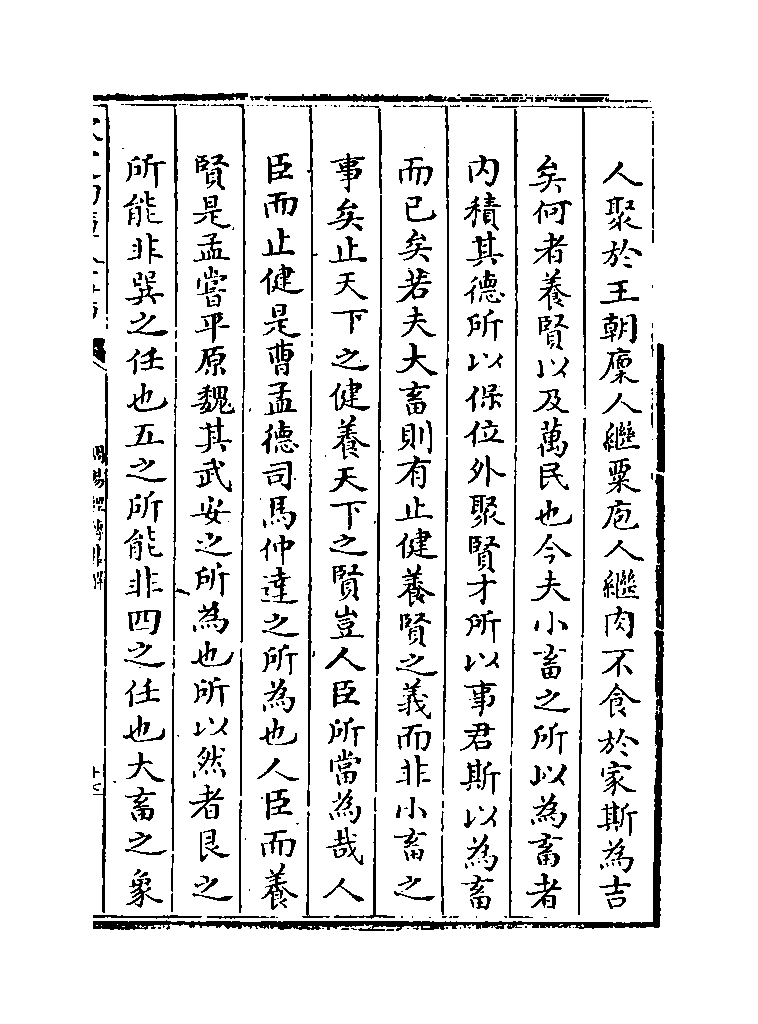 人聚於王朝廩人繼粟庖人繼肉不食於家斯為吉
矣何者養賢以及萬民也今夫小畜之所以為畜者
内積其德所以保位外聚賢才所以事君斯以為畜
而已矣若夫大畜則有止健養賢之義而非小畜之
事矣止天下之健養天下之賢豈人臣所當為哉人
臣而止健是曹孟德司馬仲達之所為也人臣而養
賢是孟嘗平原魏其武安之所為也所以然者艮之
所能非巽之任也五之所能非四之任也大畜之象